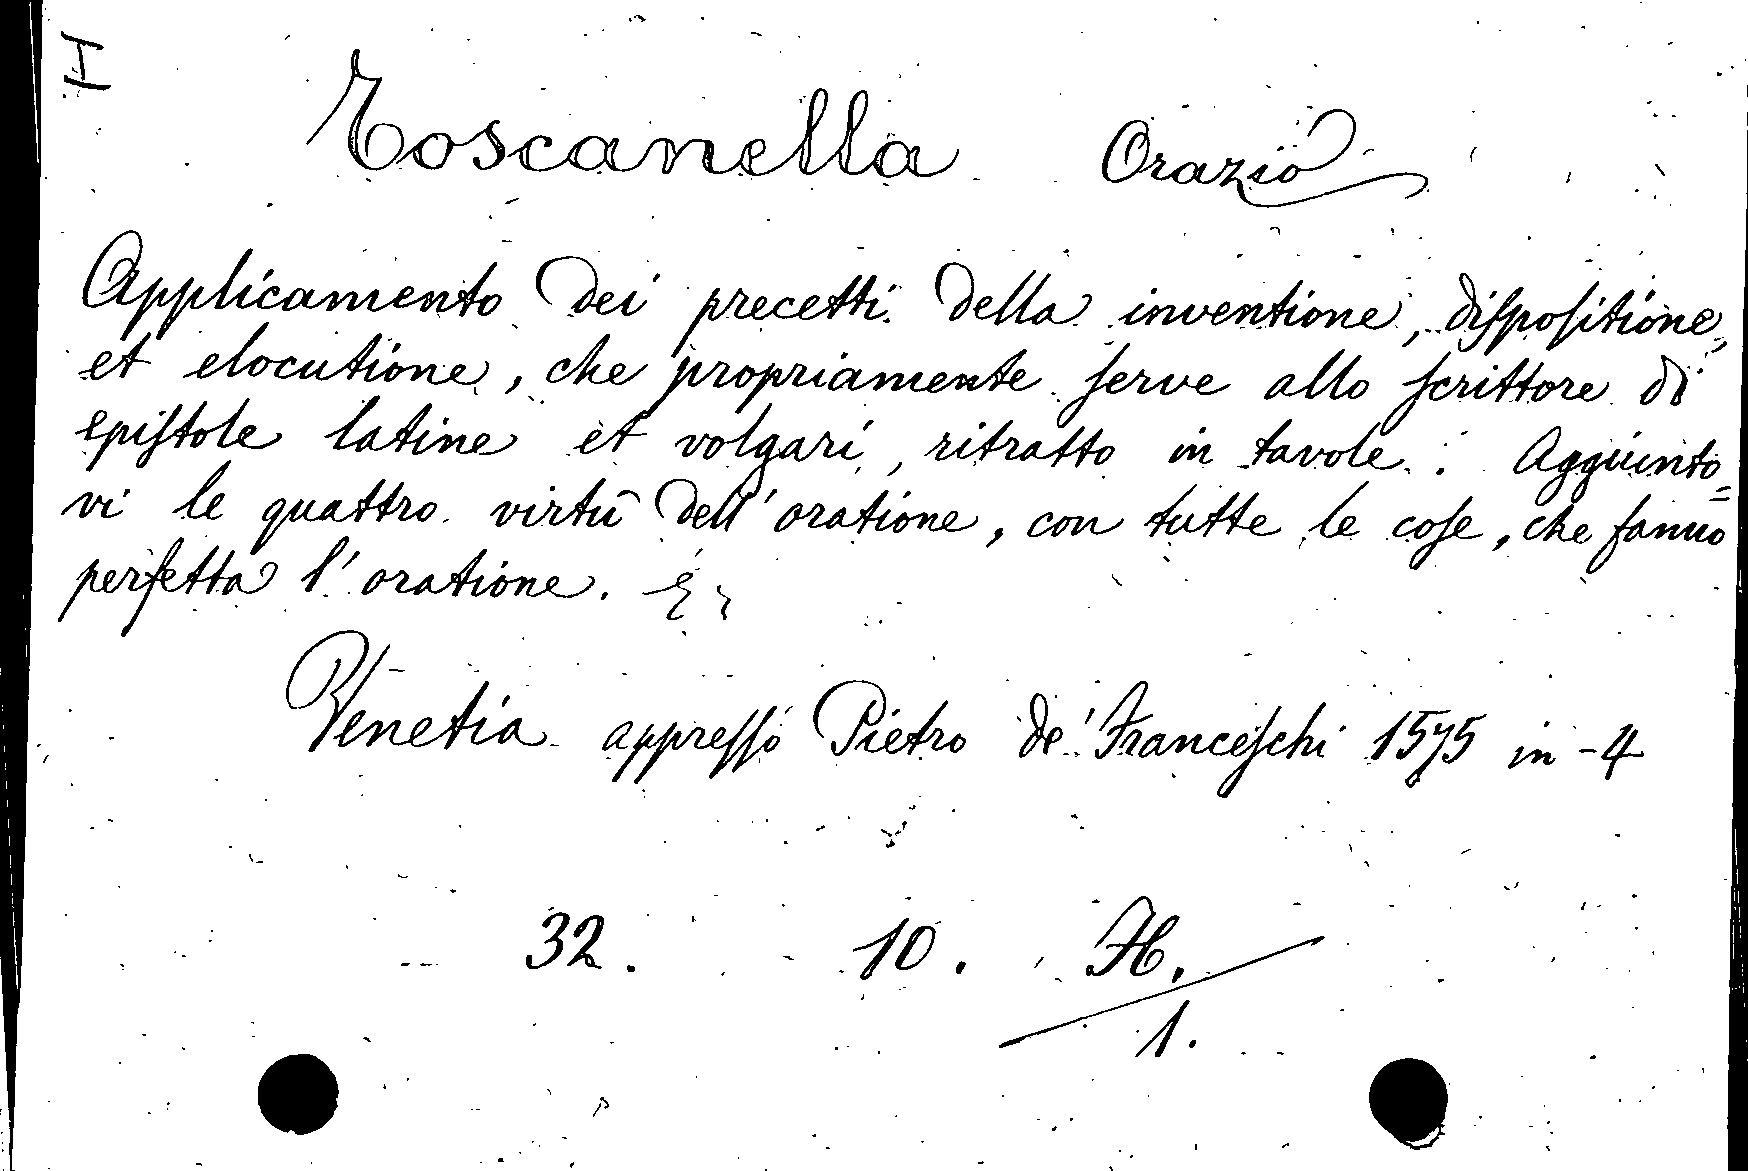 H
Toscanella Orazio
Applicamento dei precetti della inventione, diſpoſitione,
et elocutione, che propriamente ſerve allo ſcrittore di
epiſtole latine et volgari, ritratto in tavole. Aggiunto=
vi le quattro virtù dell'oratione, con tutte le coſe, che fanno
perfetta l'oratione.
Venetia appreſſo Pietro de' Franceſchi 1575 in-4
32. 10. H.
1.